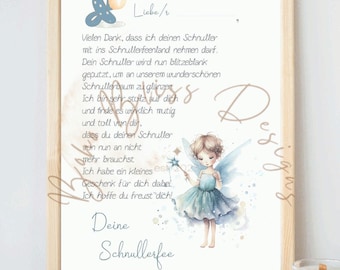 Liebe/r
Vielen Dank, dass ich deinen Schnuller
mit ins Schnullerfeenland nehmen darf.
Dein Schnuller wird nun blitzeblank
geputzt, um an unserem wunderschönen
Schnullerbaum zu glänzen.
Ich bin sehr stolz auf dich
und finde es wirklich mutig
und toll von dir,
dass du deinen Schnuller
von nun an nicht
mehr brauchst.
Ich habe ein kleines
Geschenk für dich dabei.
Ich hoffe du freust dich!
Deine
Schnullerfee
Designs